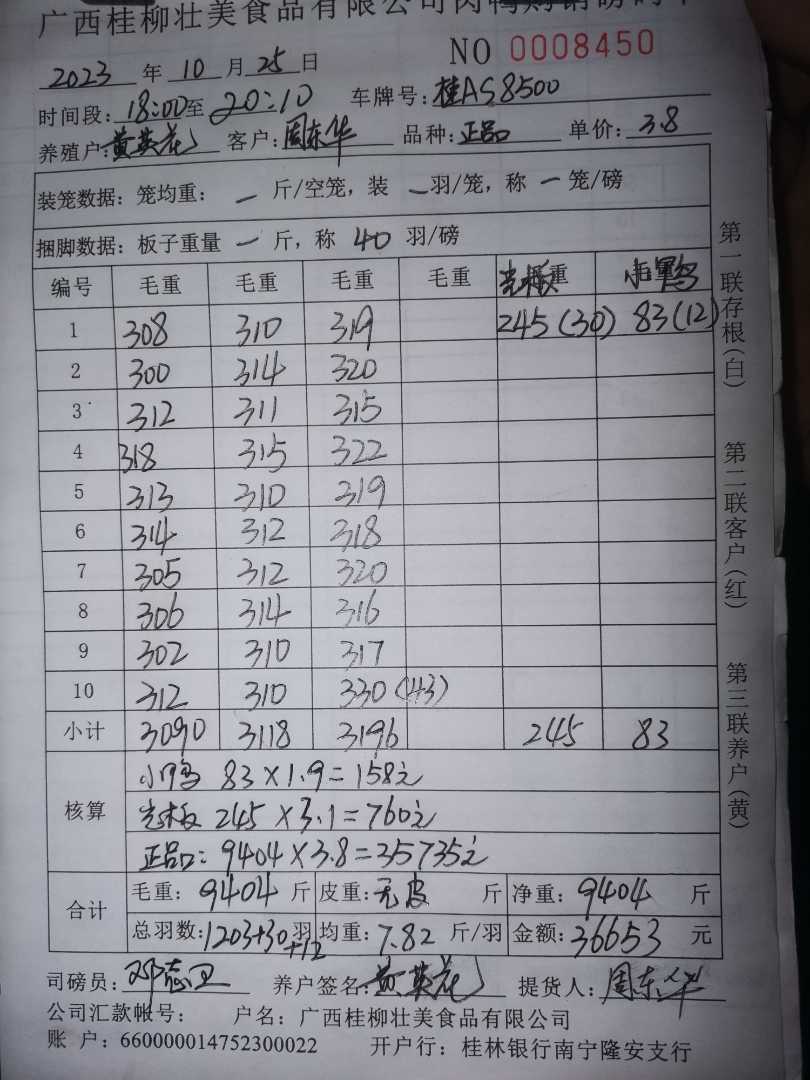 广西桂柳壮美食品有限公司肉鸭购销磅码单
NO 0008450
2023 年 10 月 25 日
时间段: 18:00 至 20:10 车牌号: 桂AS8500
养殖户: 黄英花 客户: 周东华 品种: 正品 单价: 3.8
装笼数据: 笼均重: 一 斤/空笼, 装 一 羽/笼, 称 一 笼/磅
捆脚数据: 板子重量 一 斤, 称 40 羽/磅
编号 毛重 毛重 毛重 毛重 光板 小鸭
1 308 310 319 245 (30) 83 (12)
2 300 314 320
3 312 311 315
4 318 315 322
5 313 310 319
6 314 312 318
7 305 312 320
8 306 314 316
9 302 310 317
10 312 310 330 (43)
小计 3090 3118 3196 245 83
核算 小鸭 83×1.9=158元
光板 245×3.1=760元
正品: 9404×3.8=35735元
合计 毛重: 9404 斤 皮重: 无皮 斤 净重: 9404 斤
总羽数: 1203+30+12 羽 均重: 7.82 斤/羽 金额: 36653 元
司磅员: 邓志卫 养户签名: 黄英花 提货人: 周东华
公司汇款帐号: 户名: 广西桂柳壮美食品有限公司
账 户: 660000014752300022 开户行: 桂林银行南宁隆安支行
第一联存根(白) 第二联客户(红) 第三联养户(黄)